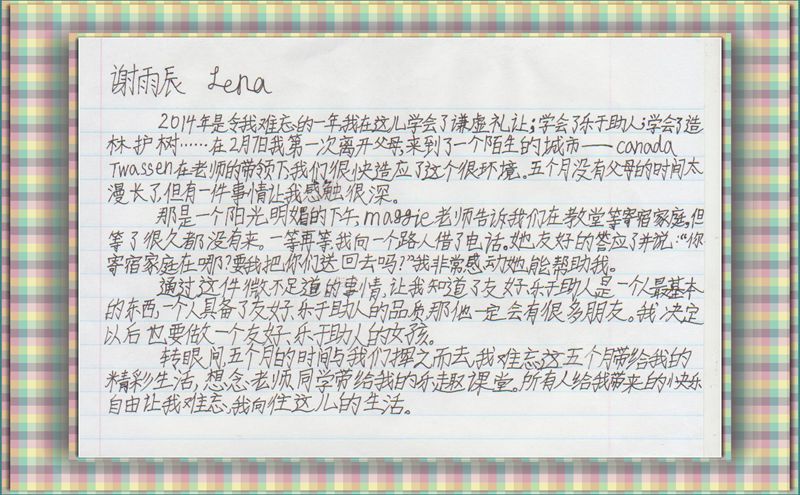 谢雨辰 Lena
2014年是令我难忘的一年,我在这儿学会了谦虚礼让;学会了乐于助人;学会了造
林护树……在2月7日我第一次离开父母,来到了一个陌生的城市——canada
Twassen在老师的带领下我们很快造应了这个很环境。五个月没有父母的时间太
漫长了,但有一件事情让我感触很深。
那是一个阳光明媚的下午,maggie老师告诉我们在教堂等寄宿家庭,但
等了很久都没有来。一等再等,我向一个路人借了电话。她友好的答应了并说:“你
寄宿家庭在哪?要我把你们送回去吗?”我非常感动她能帮助我。
通过这件微不足道的事情,让我知道了友好、乐于助人是一个人最基本
的东西,一个人具备了友好、乐于助人的品质,那他一定会有很多朋友。我决定
以后也要做一个友好、乐于助人的女孩。
转眼间五个月的时间与我们挥之而去,我难忘这五个月带给我的
精彩生活,想念老师、同学带给我的乐趣课堂。所有人给我带来的快乐
自由让我难忘,我向往这儿的生活。